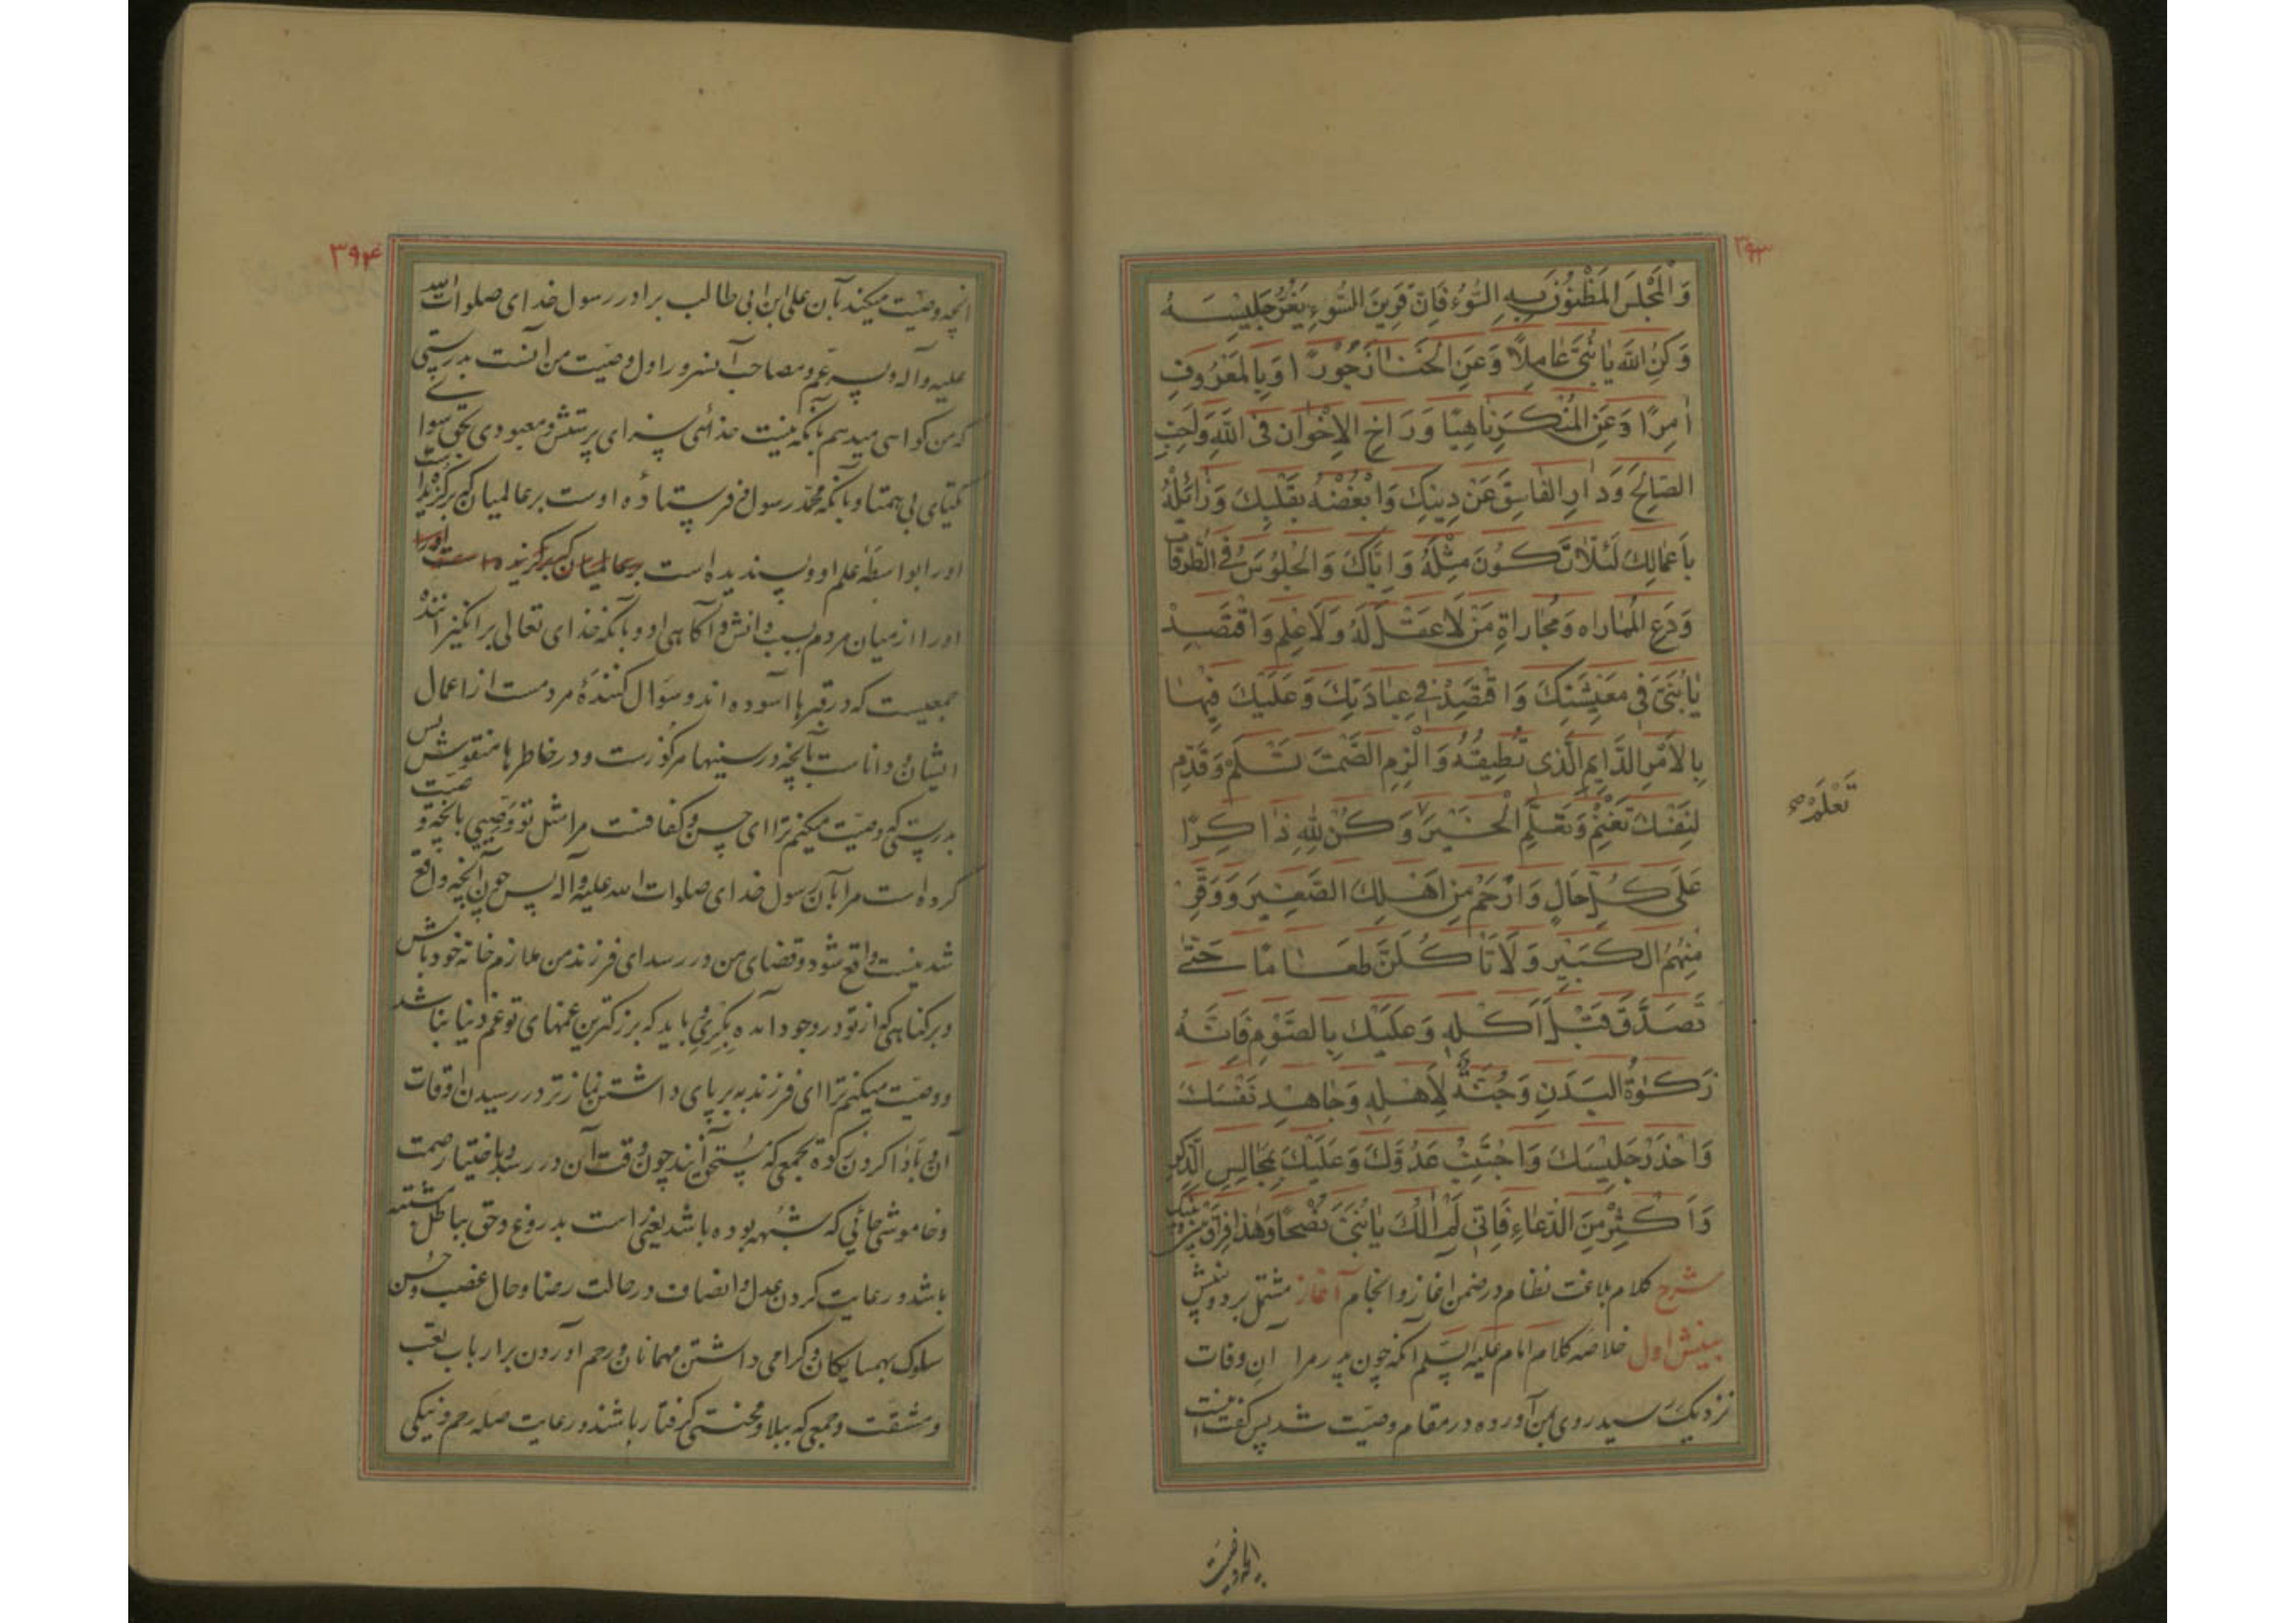 ۳۹۳
وَالْمَجْلِسَ الْمَظْنُونَ بِهِ السُّوءُ فَاِنَّ قَرِينَ السُّوءِ يَغُرُّ جَلِيسَهُ
وَكُنْ لِلّهِ يَا بُنَيَّ عَامِلًا وَعَنِ الْخَنَا زَجُورًا وَبِالْمَعْرُوفِ
اٰمِرًا وَعَنِ الْمُنْكَرِ نَاهِيًا وَوَاخِ الْاِخْوَانَ فِي اللّهِ وَاَحِبَّ
الصَّالِحَ وَدَارِ الْفَاسِقَ عَنْ دِينِكَ وَابْغَضْهُ بِقَلْبِكَ وَزَائِلْهُ
بِاَعْمَالِكَ لِئَلَّا تَكُونَ مِثْلَهُ وَاِيَّاكَ وَالْجُلُوسَ فِي الطُّرُقَاتِ
وَدَعِ الْمُمَارَاه وَمُجَارَاةِ مَنْ لَا عَقْلَ لَهُ وَلَا عِلْمَ وَاقْتَصِدْ
يَا بُنَيَّ فِي مَعِيشَتِكَ وَاقْتَصِدْ فِي عِبَادَتِكَ وَعَلَيْكَ فِيهَا
بِالْاَمْرِ الدَّايِمِ الَّذِي تُطِيقُهُ وَالْزَمِ الصَّمْتَ تَسْلَمْ وَقَدِّمْ
لِنَفْسِكَ تَغْنَمْ وَتَعَلَّمِ الْخَيْرَ وَكُنْ لِلّهِ ذَاكِرًا
تَعْلَمْ صح
عَلَى كُلِّ حَالٍ وَارْحَمْ مِنْ اَهْلِكَ الصَّغِيرَ وَوَقِّرْ
مِنْهُمُ الْكَبِيرَ وَلَا تَاكُلَنَّ طَعَامًا حَتّٰى
تَصَدَّقَ قَبْلَ اَكْلِهِ وَعَلَيْكَ بِالصَّوْمِ فَاِنَّهُ
زَكٰوةُ الْبَدَنِ وَجُنَّةٌ لِاَهْلِهِ وَجَاهِدْ نَفْسَكَ
وَاحْذَرْ جَلِيسَكَ وَاجْتَنِبْ عَدُوَّكَ وَعَلَيْكَ بِمَجَالِسِ الذِّكْرِ
وَاَكْثِرْ مِنَ الدُّعَاءِ فَاِنِّي لَمْ اٰلُكَ يَا بُنَيَّ نُصْحًا وَهٰذَا فِرَاقُ بَيْنِي وَبَيْنِكَ
شرح کلام بلاغت نظام در ضمن اغاز و انجام آغاز مشتمل بر دو بینش
بینش اول خلاصه کلام امام علیه السلم آنکه چون پدر مرا آن وفات
نزدیک رسید روی بمن آورده در مقام وصیت شد پس گفت اینست
انچه وصیت
۳۹۴
انچه وصیت میکند بآن علی ابن ابی طالب برادر رسول خدای صلوات الله
علیه وآله و پسر عم و مصاحب آنسرور اول وصیت من آنست بدرستی
که من گواهی میدهم بانکه نیست خدائی سزای پرستش و معبودی بحق سوای
یکتای بی همتا و بانکه محمد رسول و فرستاده اوست بر عالمیان که برگزیده است
اورا بواسطهٔ علم او و پسندیده است بر عالمیان که برگزیده است اورا
اورا از میان مردم بسبب دانش و آگاهی او و بانکه خدای تعالی برانگیزاننده
جمعیست که در قبرها آسوده اند و سؤال کنندهٔ مردمست از اعمال
ایشان و داناست بانچه در سینها مرکوزست و در خاطرها منقوش پس
بدرستی که وصیت میکنم ترا ای حسن و کفافست مرا مثل تو وصیی بانچه وصیت
کرده است مرا بآن رسول خدای صلوات الله علیه وآله پس چون آنچه واقع
شدنیست واقع شود و قضای من در رسد ای فرزند من ملازم خانه خود باش
و بر گناهی که از تو در وجود آمده بگری و باید که بزرکترین غمهای تو غم دنیا نباشد
و وصیت میکنم ترا ای فرزند به بر پای داشتن نماز تزد در رسیدن اوقات
آن و بادا کردن زکوة بجمعی که مستحق آنند چون وقت آن در رسد و باختیار صمت
و خاموشی جائی که شبهه بوده باشد یعنی راست بدروغ و حق بباطل مشتبه
باشد و رعایت کردن عدل و انصاف در حالت رضا و حال غضب و حسن
سلوک بهمسایکان و گرامی داشتن مهمانان و رحم آوردن بر ارباب تعب
و مشقت و جمعی که ببلا و محنتی گرفتار باشند و رعایت صله رحم و نیکی